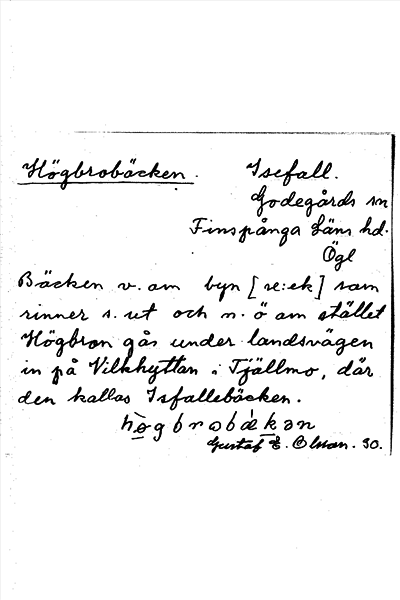 Högbrobäcken. Isefall.
Godegårds sn
Finspånga Läns hd.
Ögl
Bäcken v. om byn [se: ek] som
rinner s. ut och n. ö om stället
Högbron går under landsvägen
in på Vilkhyttan i Tjällmo, där
den kallas Isfallebäcken.
hògbrobäkən
Gustaf E. Olsson. 30.